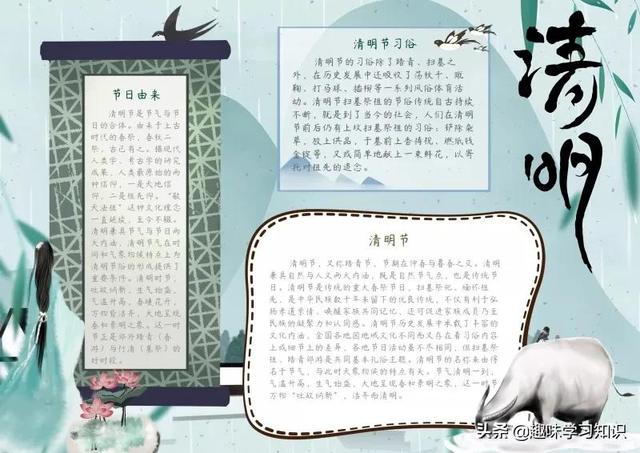 清明
节日由来
清明节是节气与节
日的合体。由来于上古
时代的春祭，春秋二
祭，古已有之。据现代
人类学、考古学的研究
成果，人类最原始的两
种信仰，一是天地信
仰，二是祖先信仰。“敬
天法祖”这种文化理念
一直延续，至今不辍。
清明兼具节气与节日两
大内涵，清明节气在时
间和气象物候特点上为
清明节俗的形成提供了
重要条件。清明时节，
吐故纳新、生气旺盛、
气温升高、春暖花开，
万物皆洁齐，大地呈现
春和景明之象。这一时
节正是郊外踏青（春
游）与行清（墓祭）的
好时段。
清明节习俗
清明节的习俗除了踏青、扫墓之
外，在历史发展中还吸收了荡秋千、蹴
鞠、打马球、插柳等一系列风俗体育活
动。清明节扫墓祭祖的节俗传统自古持续
不断，就是到了当今的社会，人们在清明
节前后仍有上坟扫墓祭祖的习俗：铲除杂
草，放上供品，于墓前上香祷祝，燃纸钱
金锭等，又或简单地献上一束鲜花，以寄
托对祖先的追念。
清明节
清明节，又称踏青节，节期在仲春与暮春之交。清明
兼具自然与人文两大内涵，既是自然节气点，也是传统节
日。清明节是传统的重大春祭节日，扫墓祭祀、缅怀祖
先，是中华民族数千年来留下的优良传统，不仅有利于弘
扬孝道亲情、唤醒家族共同记忆，还可促进家族成员乃至
民族的凝聚力和认同感。清明节历史发展中承载了丰富的
文化内涵，全国各地因地域文化不同而又存在着习俗内容
上或细节上的差异，各地节日活动虽不尽相同，但扫墓祭
祖、踏青郊游是共同基本礼俗主题。清明节的名称来由得
名于节气，与此时天象物候的特点有关。节气清明一到，
气温升高，生气始盛，大地呈现春和景明之象，这一时节
万物“吐故纳新”，洁齐而清明。
头条 @趣味学习知识